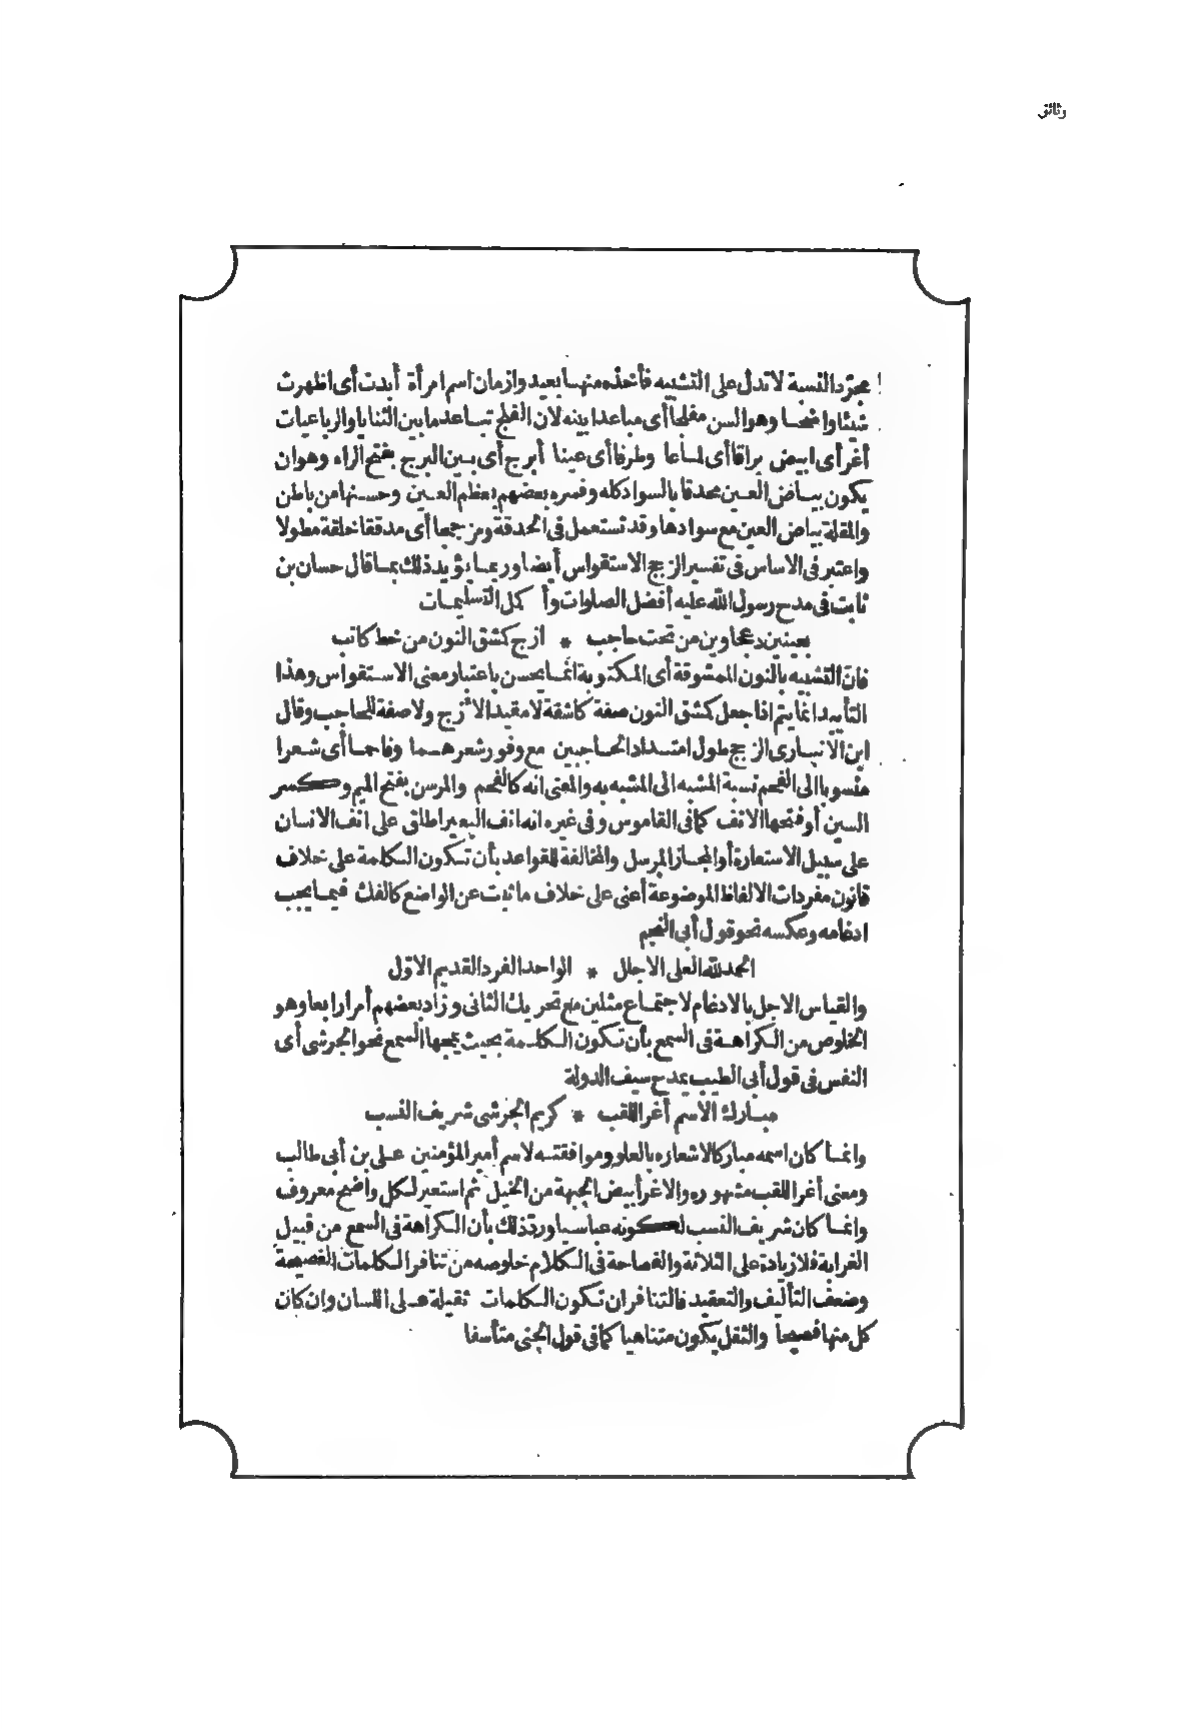 وثائق
مجرّد النسبة لا تدل على التشبيه فأخذه منها بعيد وازمان اسم امرأة أبدت أى اظهرت
شيئا واضحا وهو السن مفلجا أى مباعدا بينه لان الفلج تباعد ما بين الثنايا والرباعيات
أغر أى ابيض براقا أى لماعا وطرفا أى عينا أبرج أى بين البرج بفتح الراء وهو ان
يكون بياض العين محدقا بالسواد كله وفسره بعضهم بعظم العين وحسنها من باطن
والمقلة بياض العين مع سوادها وقد تستعمل فى الحدقة ومزججا أى مدققا خلقة مطولا
واعتبر فى الاساس فى تفسير الزجج الاستقواس أيضا وربما يؤيد ذلك بما قال حسان بن
ثابت فى مدح رسول الله عليه أفضل الصلوات وأكمل التسليمات
بعينين دعجاوين من تحت حاجب * ازج كشق النون من خط كاتب
فانّ التشبيه بالنون الممشوقة أى المكتوبة انما يحسن باعتبار معنى الاستقواس وهذا
التأييد انما يتم اذا جعل كمشق النون صفة كاشفة لا مقيد الازج ولا صفة للحاجب وقال
ابن الانبارى الزجج طول امتداد الحاجبين مع وفور شعرهما وفاحما أى شعرا
منسوبا الى الفحم نسبة المشبه الى المشبه به والمعنى انه كالفحم والمرسن بفتح الميم وكسر
السين أو فتحها الانف كما فى القاموس وفى غيره انه انف البعير اطلق على انف الانسان
على سبيل الاستعارة أو المجاز المرسل والمخالفة للقواعد بأن تكون الكلمة على خلاف
قانون مفردات الالفاظ الموضوعة أعنى على خلاف ما ثبت عن الواضع كالفك فيما يجب
ادغامه وعكسه نحو قول أبى النجم
الحمد لله العلى الاجلل * الواحد الفرد القديم الاوّل
والقياس الاجل بالادغام لاجتماع مثلين مع تحريك الثانى وزاد بعضهم أمرا رابعا وهو
الخلوص من الكراهة فى السمع بأن تكون الكلمة بحيث يمجها السمع نحو الجرشى أى
النفس فى قول أبى الطيب يمدح سيف الدولة
مبارك الاسم أغر اللقب * كريم الجرشى شريف النسب
وانما كان اسمه مباركا لاشعاره بالعلو وموافقته لاسم أمير المؤمنين على بن أبى طالب
ومعنى أغر اللقب مشهوره والاغر أبيض الجبهة من الخيل ثم استعير لكل واضح معروف
وانما كان شريف النسب لكونه عباسيا وردّ ذلك بأن الكراهة فى السمع من قبيل
الغرابة فلا زيادة على الثلاثة والفصاحة فى الكلام خلوصه من تنافر الكلمات الفصيحة
وضعف التأليف والتعقيد فالتنافر ان تكون الكلمات ثقيلة على اللسان وان كان
كل منها فصيحا والثقل يكون متناهيا كما فى قول الجنى متأسفا